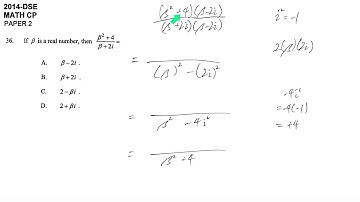 2014-DSE
MATH CP
PAPER 2
36. If β is a real number, then (β² + 4)/(β + 2i) =
A. β − 2i .
B. β + 2i .
C. 2 − βi .
D. 2 + βi .
(β² + 4)(β − 2i)
(β + 2i)(β − 2i)
=
(β)² − (2i)²
=
β² − 4i²
=
β² + 4
i² = −1
2(β)(2i)
−4i²
= −4(−1)
= +4